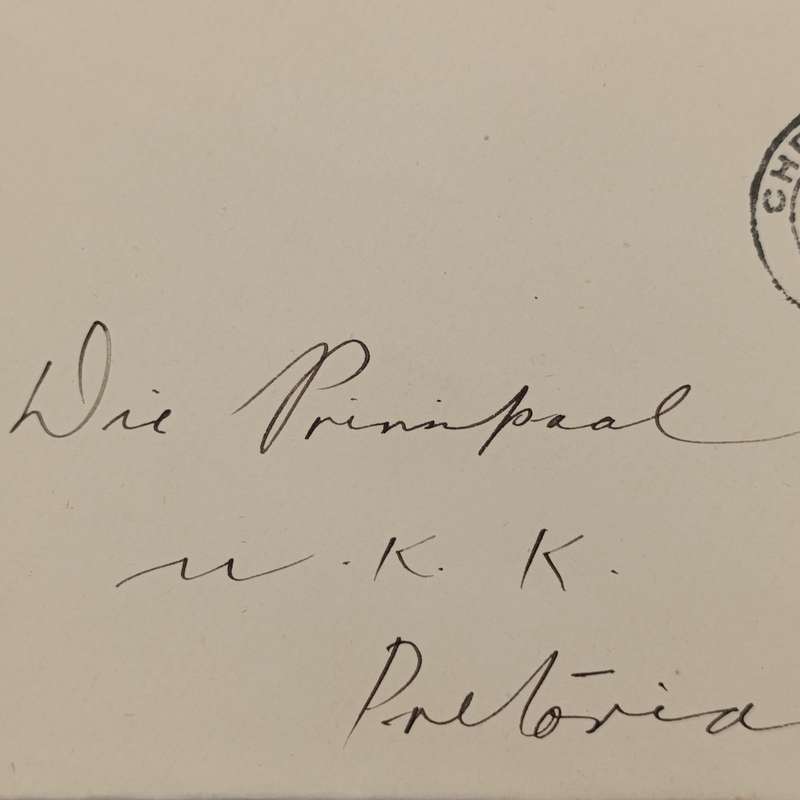 CHR
Die Prinsipaal
N.K.K.
Pretoria